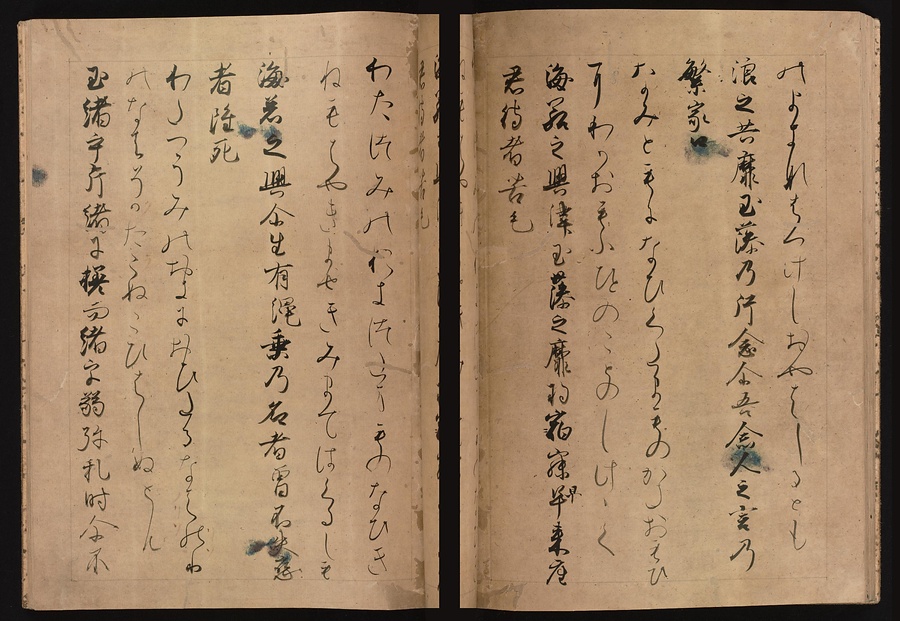 のよしなはつけしおやはしるとも
浪之共靡玉藻乃片念尓吾念人之言乃
繁家口
なみともになひくたまものかたおもひ
にわかおもふひとのことのしけゝく
海若之奥津玉藻之靡将宿寐早来座
君待者苦毛
わたつみのおきつたまものなひき
ねむはやきませきみまてはくるしも
海若之奥尓生有縄乗乃名者曽不告恋
者雖死
わたつうみのおきにおひたるなはのり
のなはそ こひはしぬとん
玉緒乎片緒尓搓而緒乎弱弥乱時尓不